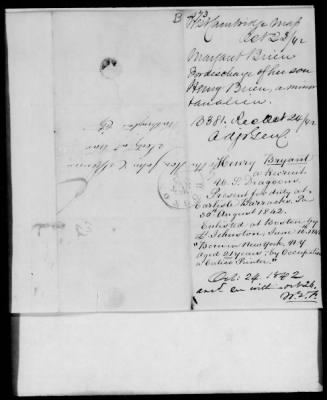 B 473
W. Cambridge Mass
Oct 23/42
Margaret Brien
for discharge of her son
Henry Brien, a minor
B 381. Rec Oct 24/42
Adj Gen
Henry Bryant
a Recruit
U. S. Dragoons.
Present for duty at
Carlisle Barracks, Pa
30th August 1842.
Enlisted at Boston by
Lt. Johnston, June 16th
"Born in New York, N.Y
Aged 21 years; by Occupation
a Calico Printer."
Oct: 24. 1842
The Hon. John C. Spencer
Secty of War
Washington City